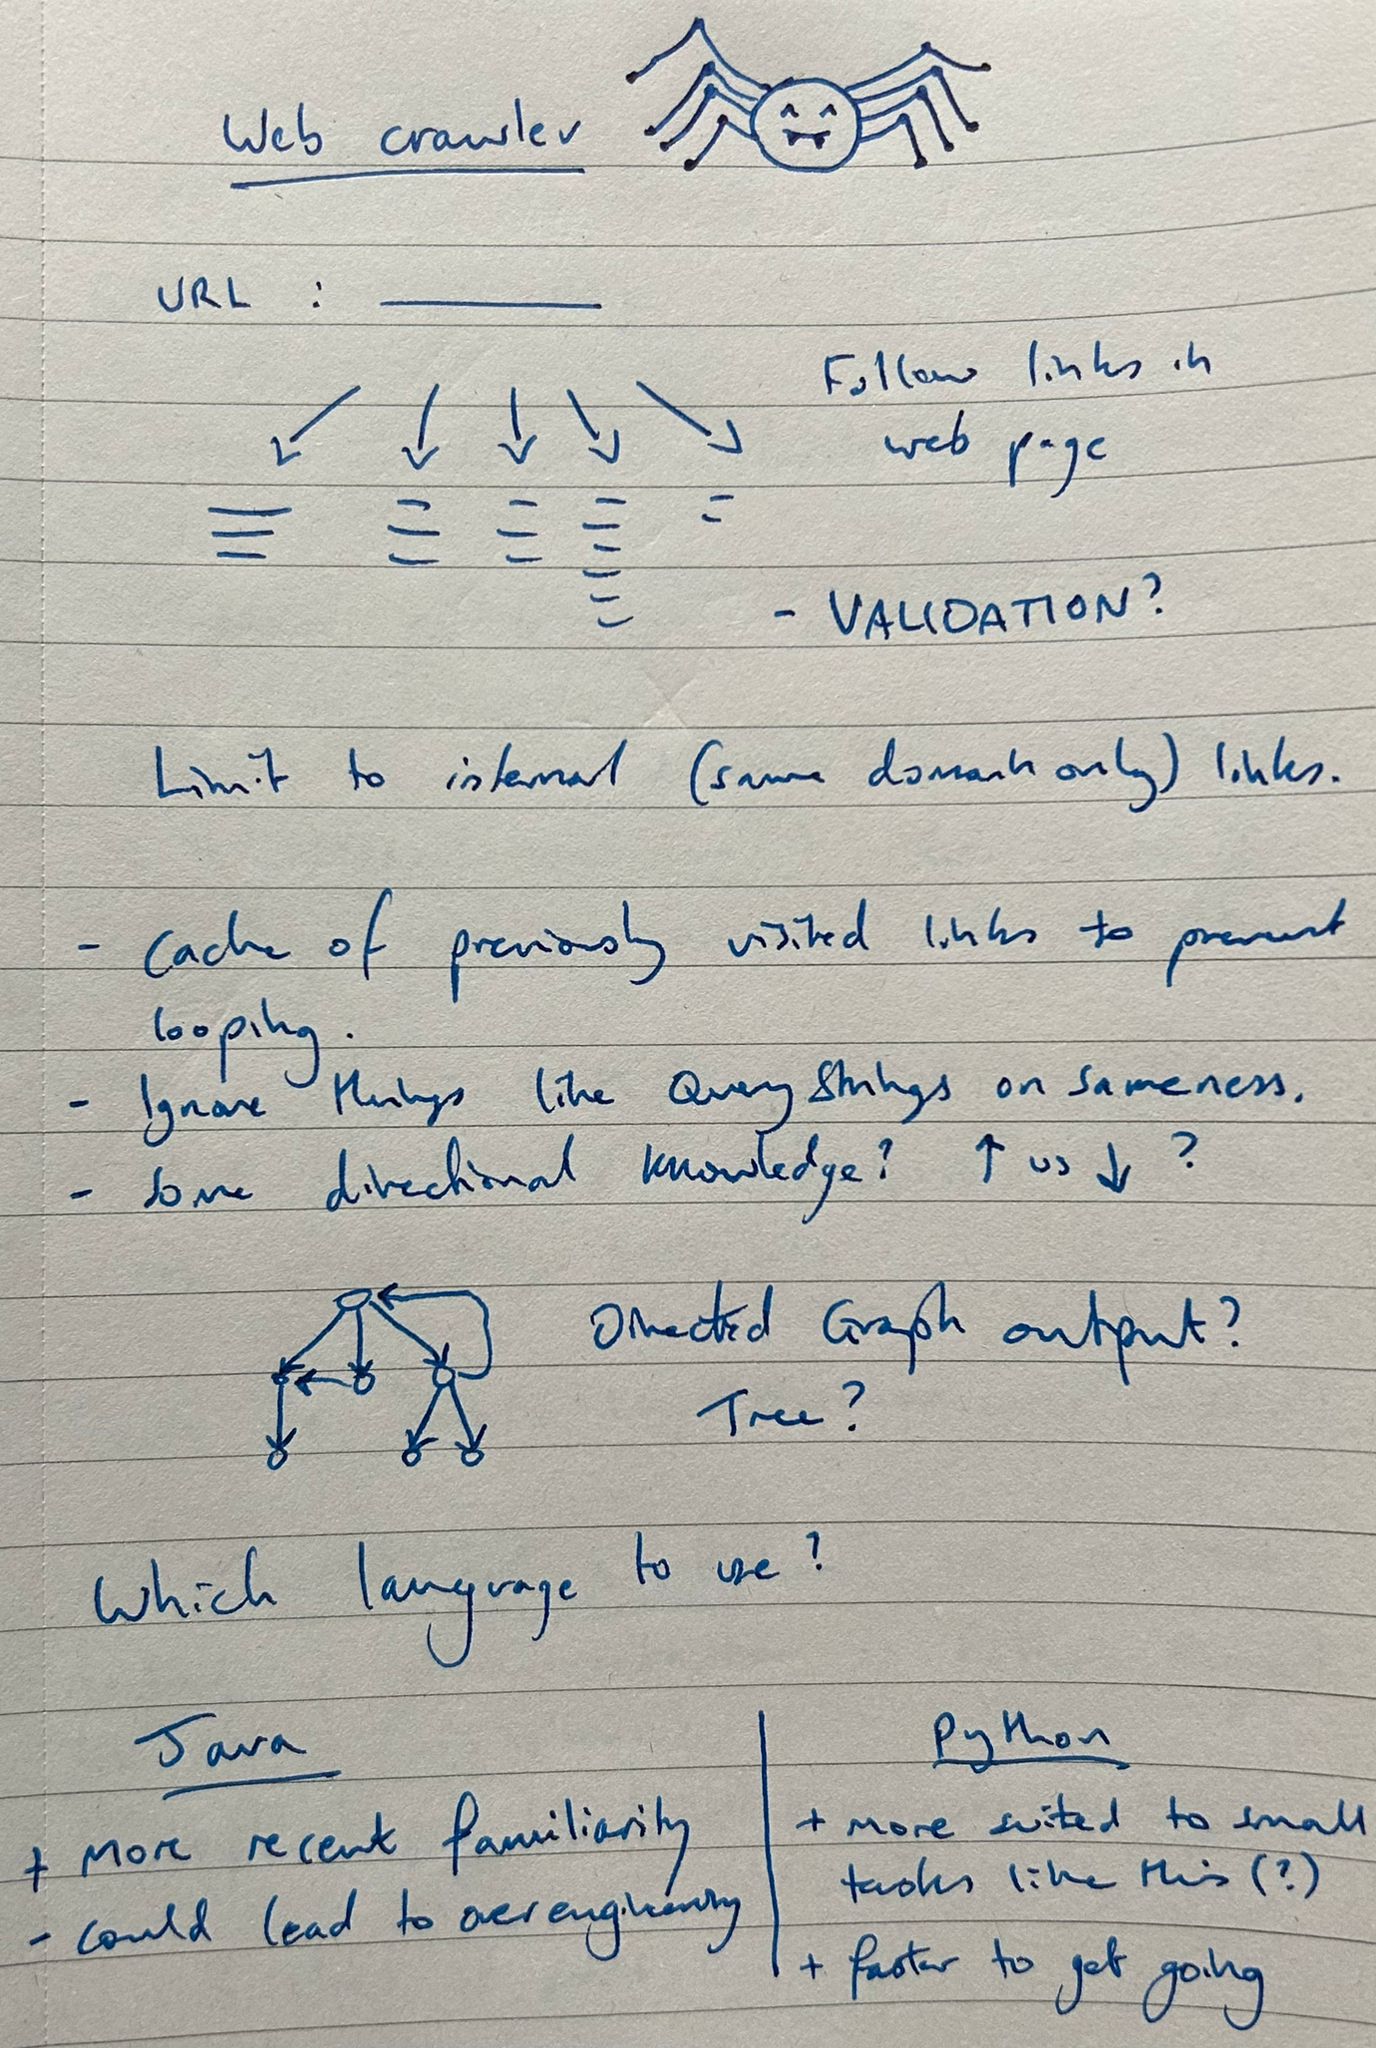 Web crawler
URL :
Follow links in
web page
- VALIDATION?
Limit to internal (same domain only) links.
- Cache of previously visited links to prevent
looping.
- Ignore things like Query Strings on sameness.
- Some directional knowledge? ↑ vs ↓ ?
Directed Graph output?
Tree?
Which language to use?
Java
+ more recent familiarity
- could lead to overengineering
Python
+ more suited to small
tasks like this (?)
+ faster to get going